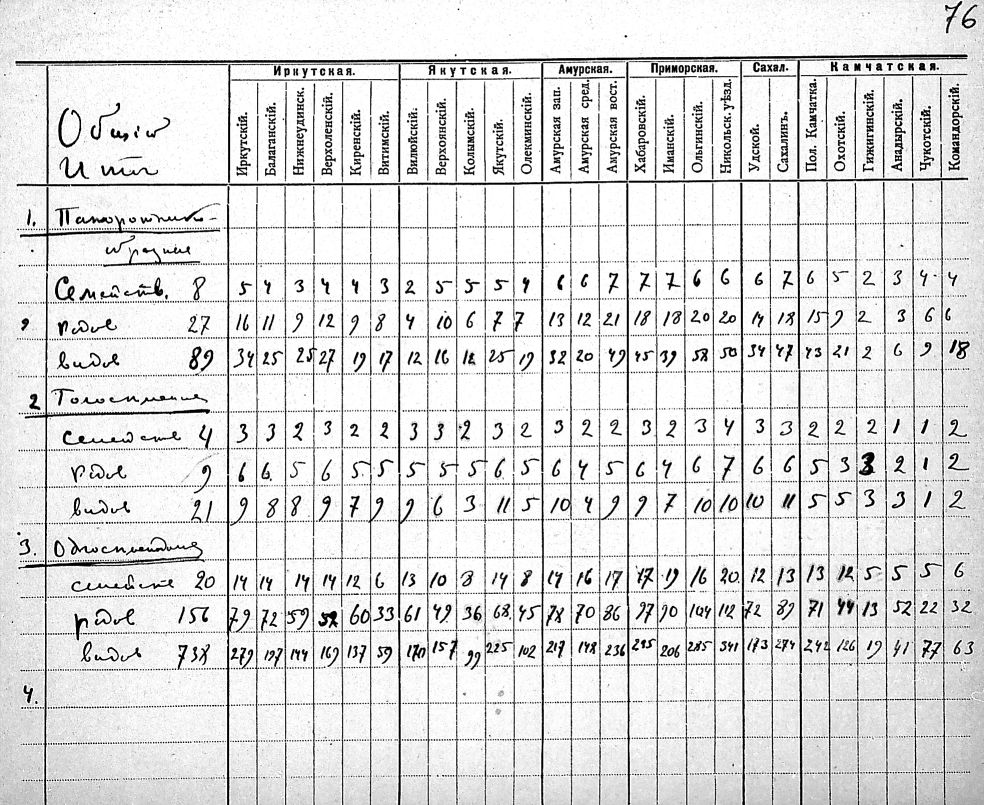 76
Иркутская. Якутская. Амурская. Приморская. Сахал. Камчатская.
Общій Иркутскій. Балаганскій. Нижнеудинск. Верхоленскій. Киренскій. Витимскій. Вилюйскій. Верхоянскій. Колымскій. Якутскій. Олекминскій. Амурская зап. Амурская сред. Амурская вост. Хабаровскій. Иманскій. Ольгинскій. Никольск. уѣзд. Удской. Сахалинъ. Пол. Камчатка. Охотскій. Гижигинскій. Анадырскій. Чукотскій. Командорскій.
Итог
1. Папоротнико-
образные
Семейств. 8 5 4 3 4 4 3 2 5 5 5 4 6 6 7 7 7 6 6 6 7 6 5 2 3 4 4
родов 27 16 11 9 12 9 8 4 10 6 7 7 13 12 21 18 18 20 20 14 18 15 9 2 3 6 6
видов 89 34 25 25 27 19 17 12 16 12 25 19 32 20 49 45 39 58 50 34 47 43 21 2 6 9 18
2 Голосемянные
семейств 4 3 3 2 3 2 2 3 3 2 3 2 3 2 2 3 2 3 4 3 3 2 2 2 1 1 2
родов 9 6 6 5 6 5 5 5 5 5 6 5 6 4 5 6 4 6 7 6 6 5 3 3 2 1 2
видов 21 9 8 8 9 7 9 9 6 3 11 5 10 4 9 9 7 10 10 10 11 5 5 3 3 1 2
3. Односемядольные
семейств 20 14 14 14 14 12 6 13 10 8 14 8 14 16 17 17 19 16 20 12 13 13 12 5 5 5 6
родов 156 79 72 59 52 60 33 61 49 36 68 45 78 70 86 97 90 104 112 72 89 71 44 13 52 22 32
видов 738 279 197 144 169 137 59 170 157 99 225 102 217 148 236 295 206 285 341 173 274 242 126 19 41 77 63
4.